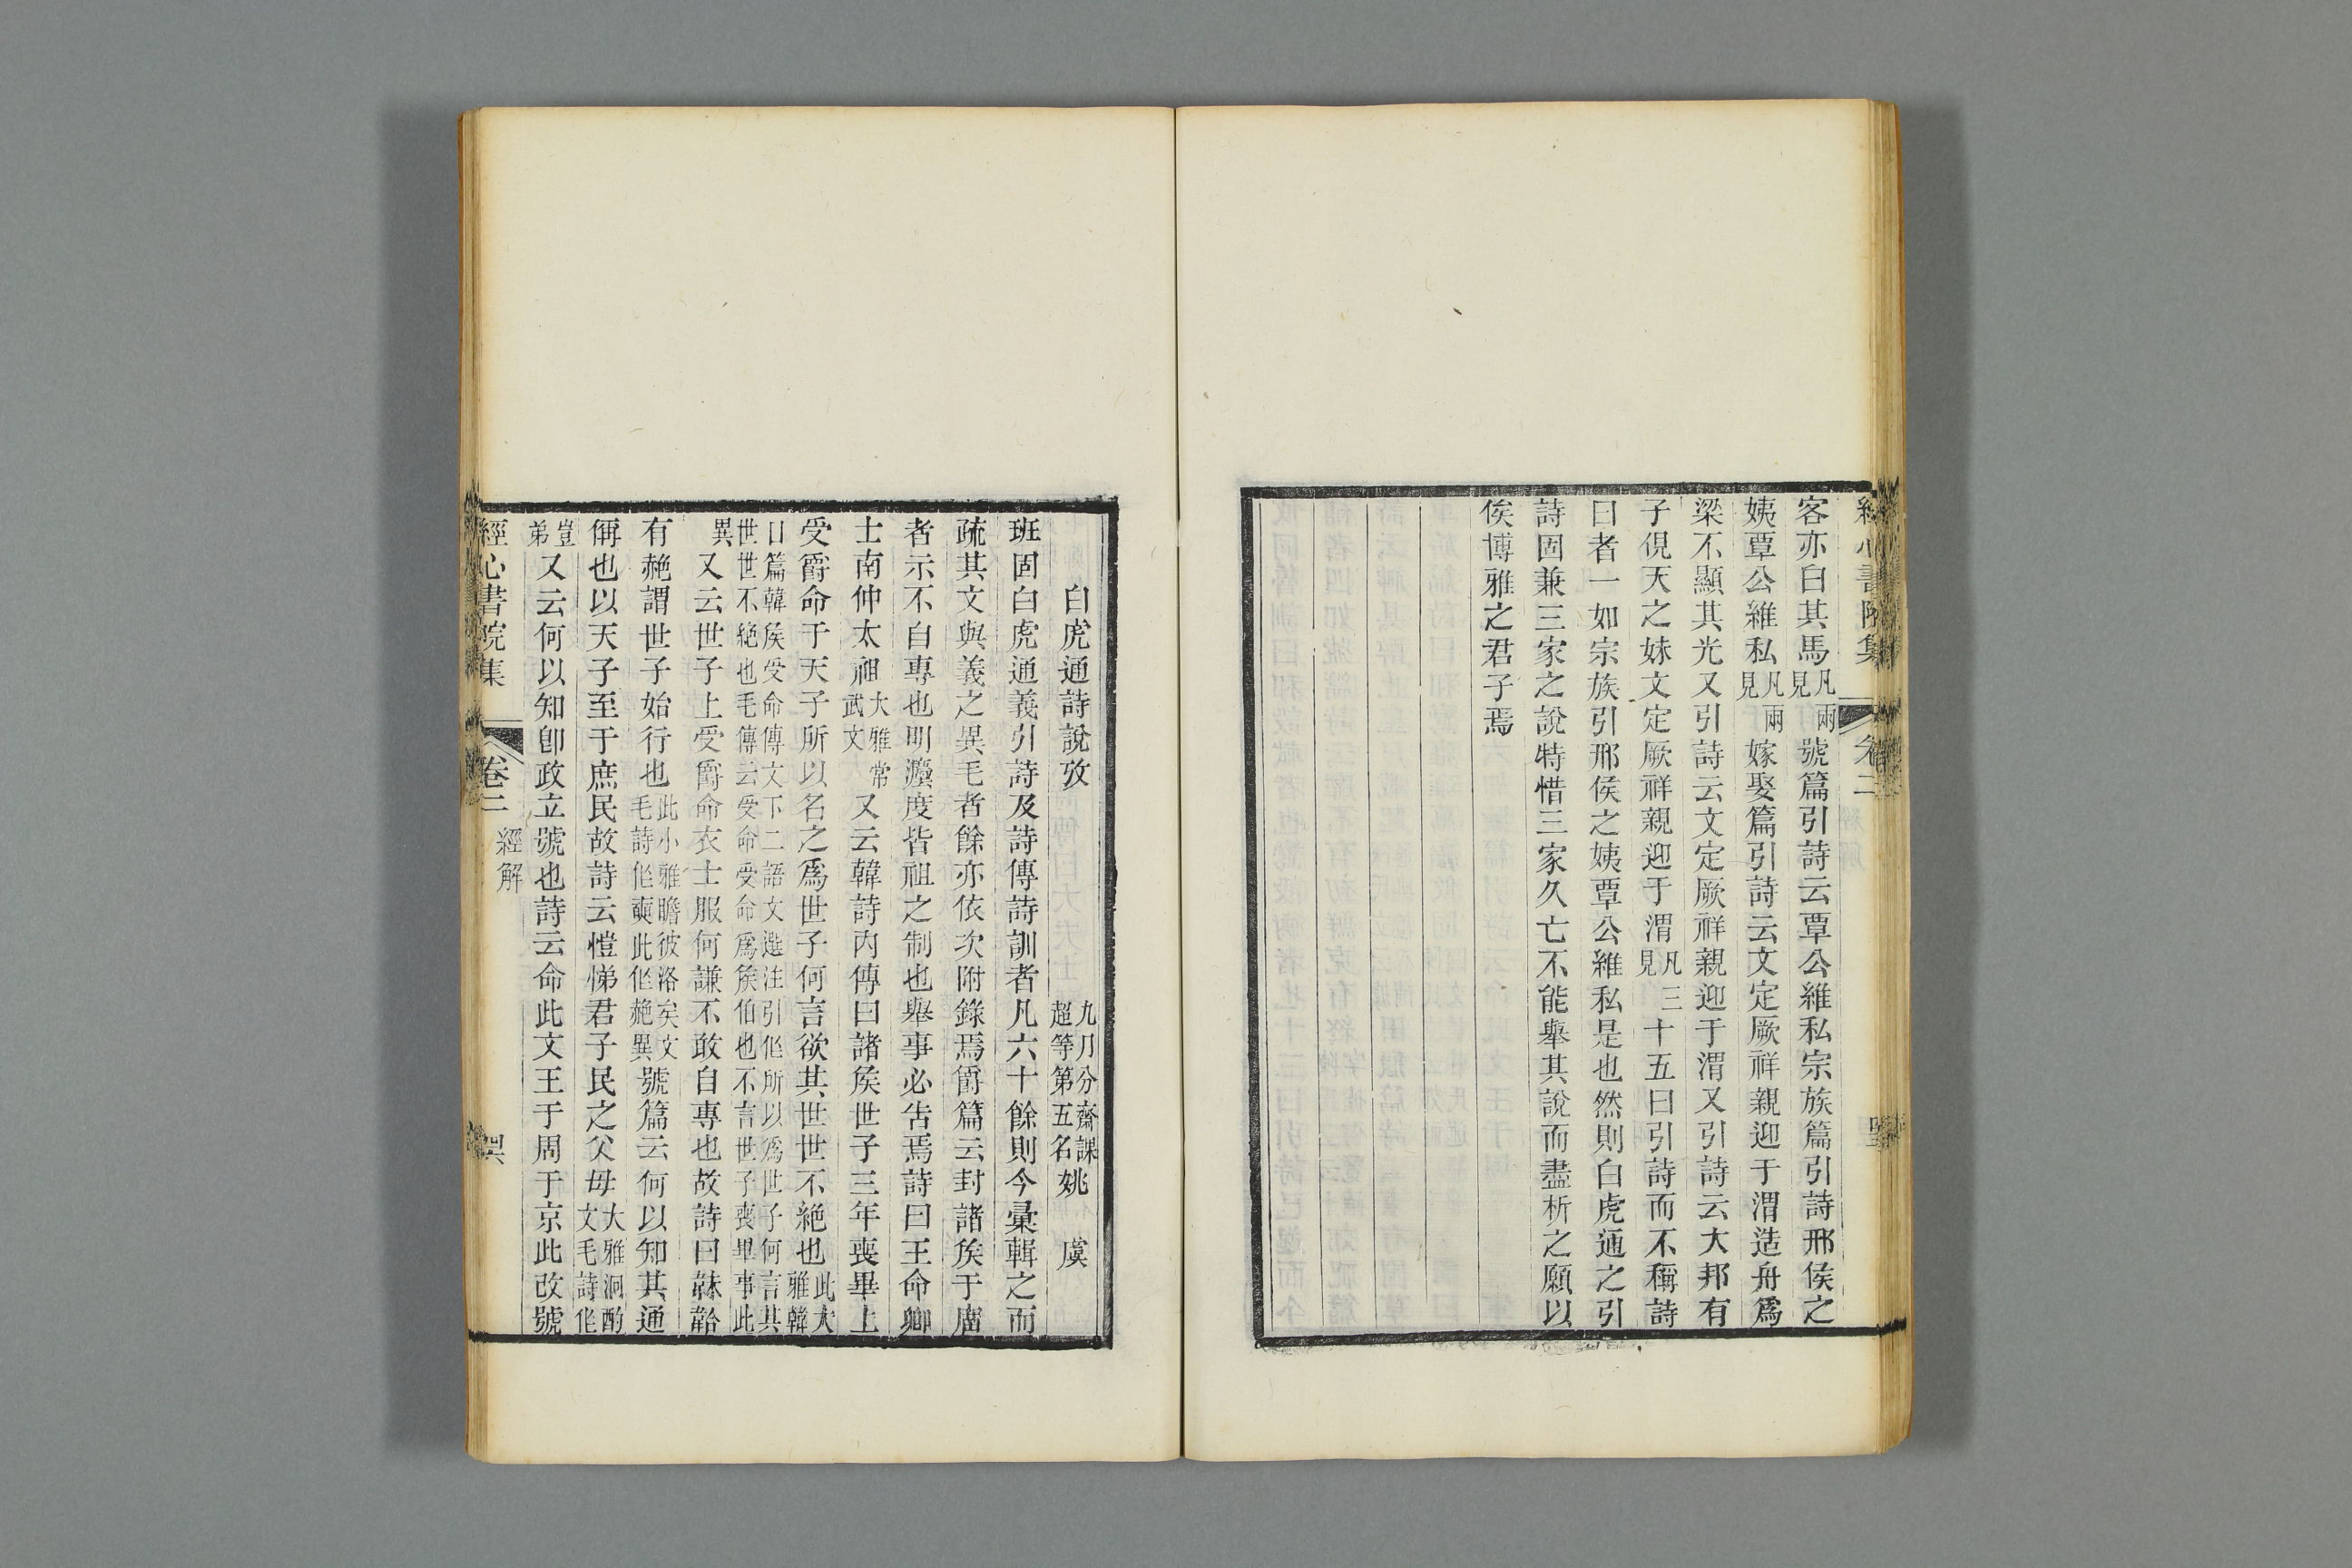 經心書院集 卷二
客亦白其馬凡兩見號篇引詩云覃公維私宗族篇引詩邢侯之
姨覃公維私凡兩見嫁娶篇引詩云文定厥祥親迎于渭造舟爲
梁不顯其光又引詩云文定厥祥親迎于渭又引詩云大邦有
子俔天之妹文定厥祥親迎于渭凡三見十五曰引詩而不稱詩
曰者一如宗族引邢侯之姨覃公維私是也然則白虎通之引
詩固兼三家之說特惜三家久亡不能舉其說而盡析之願以
俟博雅之君子焉
白虎通詩說攷 九月分齋課超等第五名姚 虞
班固白虎通義引詩及詩傳詩訓者凡六十餘則今彙輯之而
疏其文與義之異毛者餘亦依次附錄焉爵篇云封諸矦于廟
者示不自專也明灋度皆祖之制也舉事必告焉詩曰王命卿
士南仲太祖大雅常武文又云韓詩內傳曰諸矦世子三年喪畢上
受爵命于天子所以名之爲世子何言欲其世世不絕也此大雅韓
日篇韓矦受命傳文下二語文選注引作所以爲世子何言其
世世不絕也毛傳云受命受命爲矦伯也不言世子喪畢事此
異又云世子上受爵命衣士服何謙不敢自專也故詩曰韎韐
有赩謂世子始行也此小雅瞻彼洛矣文毛詩作奭此作赩異號篇云何以知其通
偁也以天子至于庶民故詩云愷悌君子民之父母大雅泂酌文毛詩作
豈弟又云何以知卽政立號也詩云命此文王于周于京此改號
經心書院集 卷二 經解